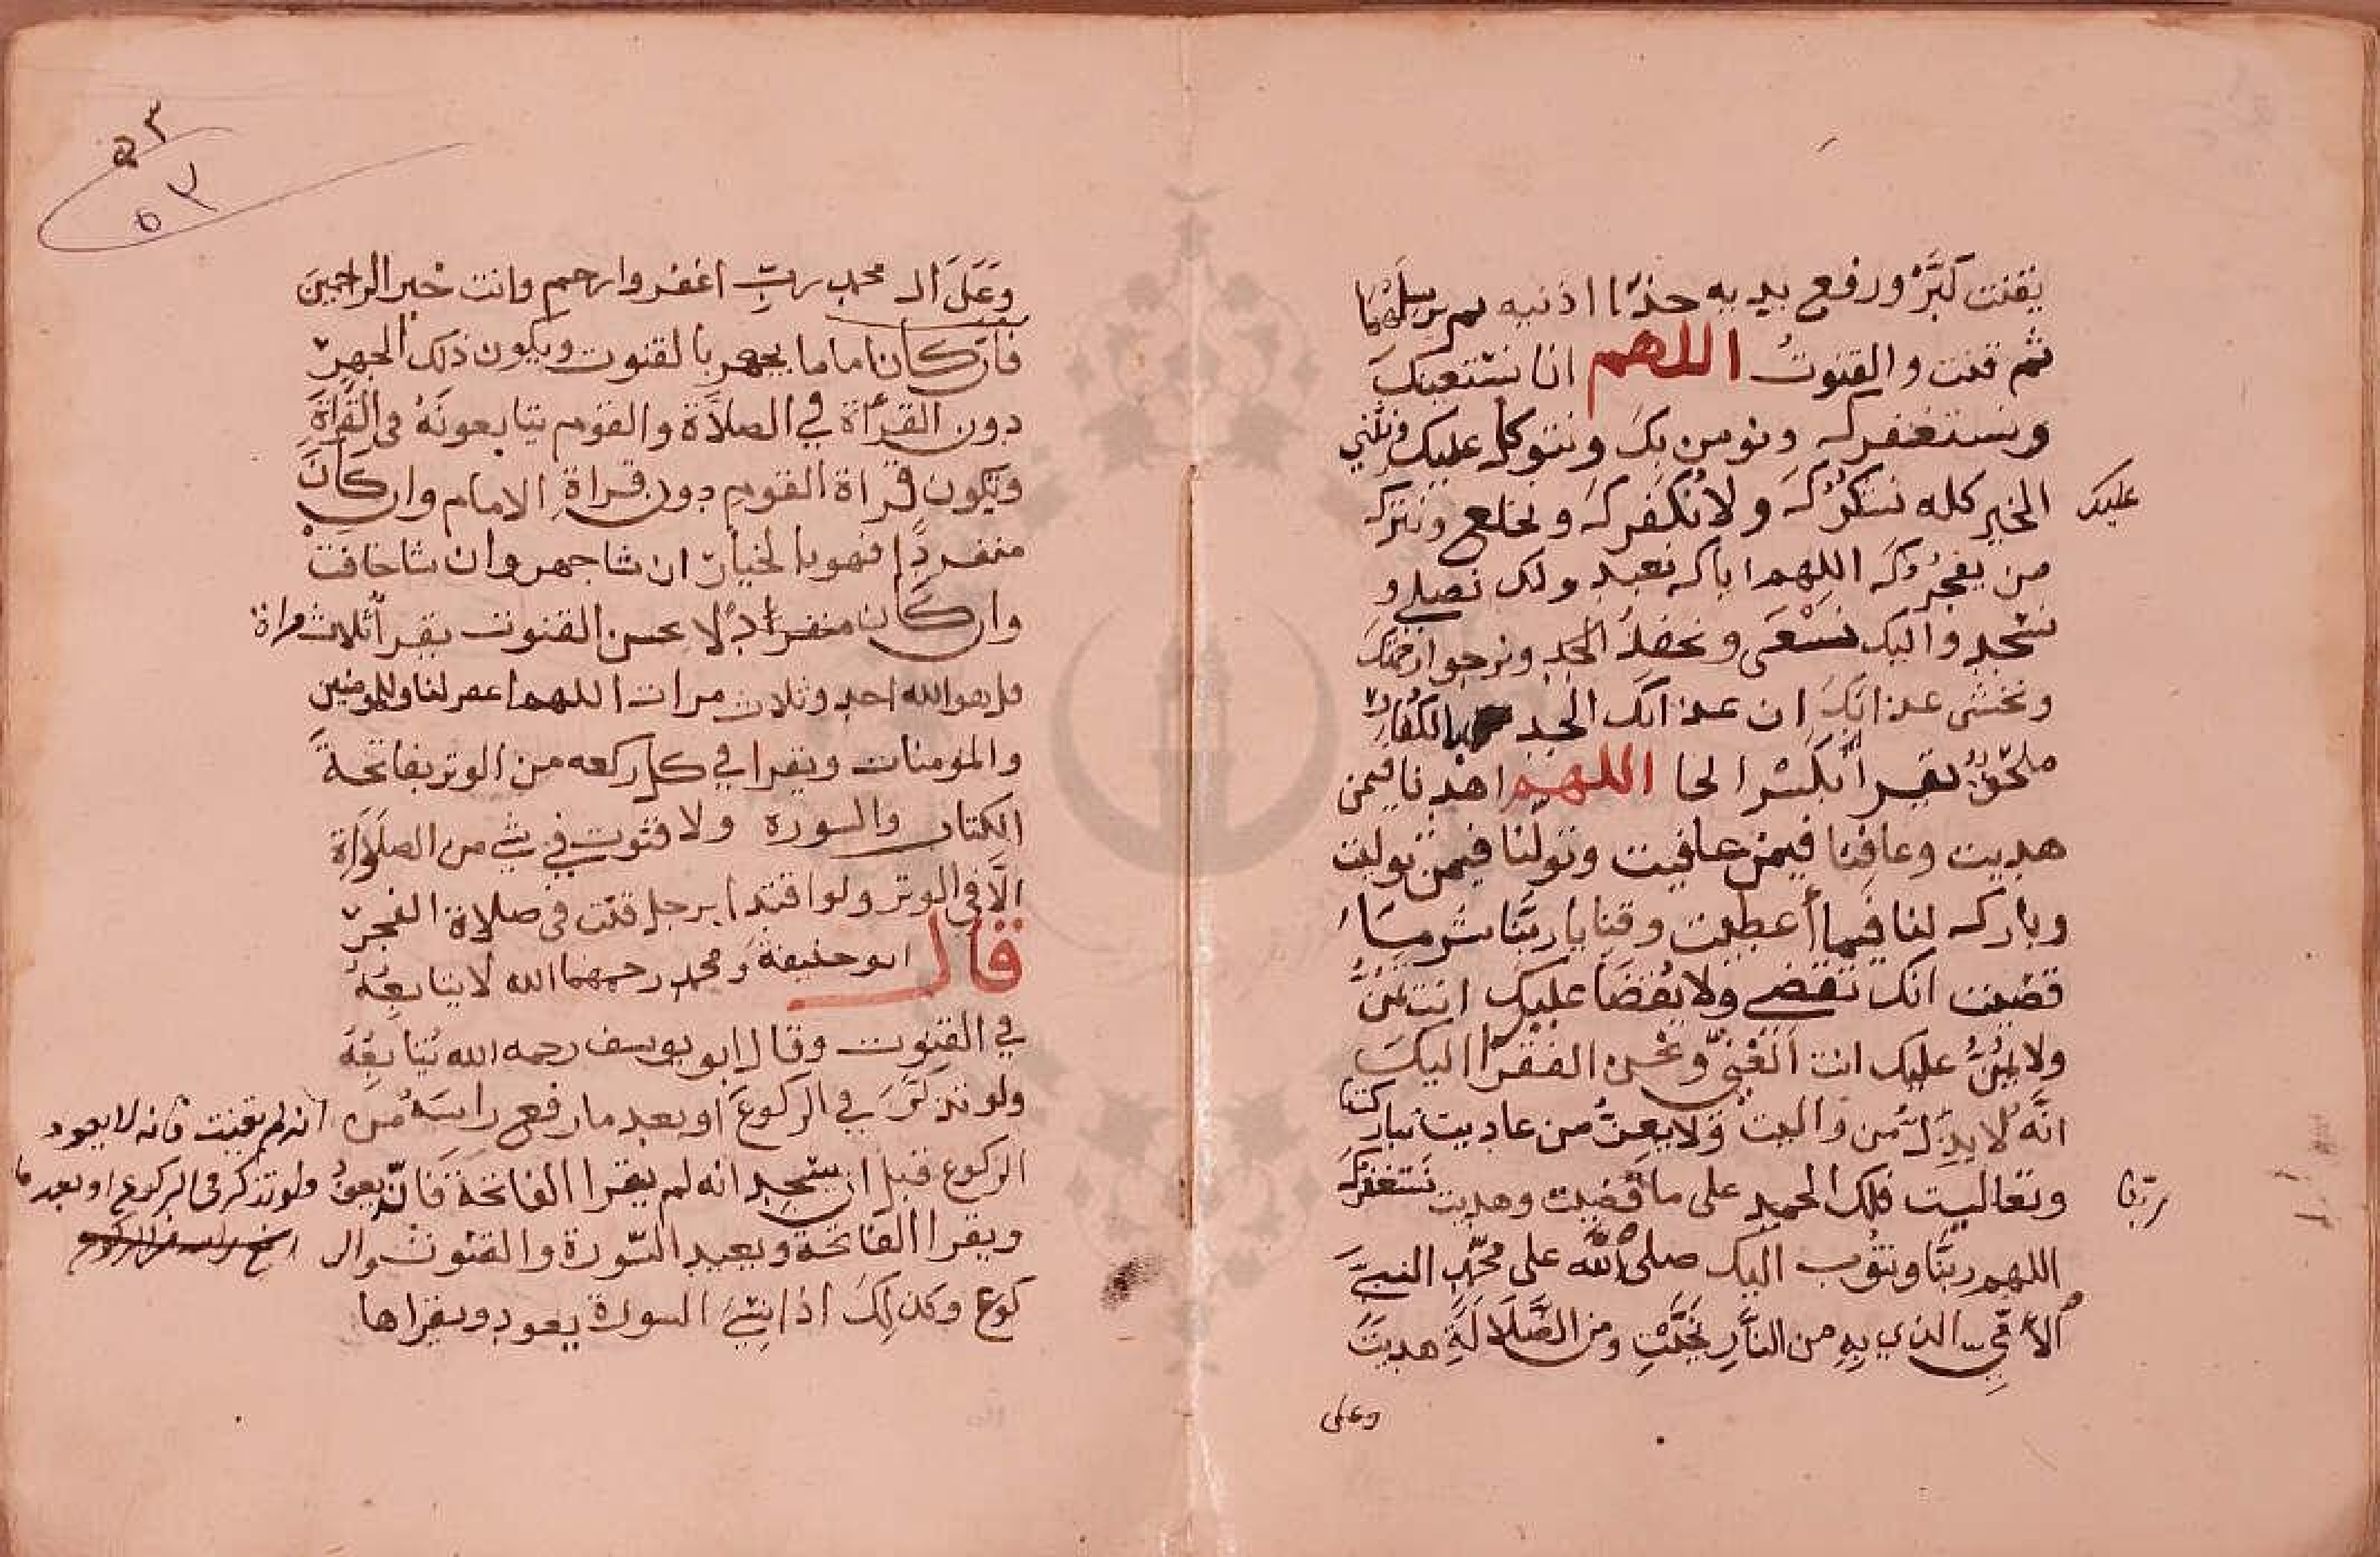 يقنت كبّر ورفع يديه حذا اذنيه ثم يرسلهما
ثم قنت والقنوت اللهم انا نستعينك
ونستغفرك ونومن بك ونتوكل عليك ونثني
عليك
الخير كله نشكرك ولا نكفرك ونخلع ونترك
من يفجرك اللهم اياك نعبد ولك نصلي و
نسجد واليك نسعى ونحفد الجد ونرجوا رحمتك
ونخشى عذابك ان عذابك الجد بالكفار
ملحق يقرأ بكسر الحا اللهم اهدنا فيمن
هديت وعافنا فيمن عافيت وتولنا فيمن توليت
وبارك لنا فيما أعطيت وقنا ياربنا شر ما
قضيت انك تقضي ولا يقضا عليك انت تمنّ
ولا يمنّ عليك انت الغني ونحن الفقرا اليك
انّه لا يذل من واليت ولا يعز من عاديت تباركت
ربنا
وتعاليت فلك الحمد على ما قضيت وهديت نستغفرك
اللهم ربنا ونتوب اليك صلى الله على محمد النبي
الأمّي الذي به من النار نجّيت ومن الضلالة هديت
وعلى
٢٣
٥٣
وعلى ال محمد ربّ اغفر وارحم وانت خير الراحمين
فان كان اماما يجهر بالقنوت ويكون ذلك الجهر
دون القرأة في الصلاة والقوم يتابعونه في القرأة
ويكون قراة القوم دون قراة الامام وان كان
منفردًا فهو بالخيار ان شا جهر وان شا خافت
وان كان منفردًا لا يحسن القنوت يقرأ ثلاث مراة
قل هو الله احد وثلاث مرات اللهم اغفر لنا وللمومنين
والمؤمنات ويقرا في كل ركعه من الوتر بفاتحة
الكتاب والسورة ولا قنوت في شي من الصلاة
الّا في الوتر ولو اقتدا برجل قنت في صلاة الفجر
قال ابو حنيفة ومحمد رحمهما الله لا يتابعه
في القنوت وقال ابو يوسف رحمه الله يتابعه
ولو تذكر في الركوع او بعد ما رفع راسه من انه لم يقنت فانه لا يعود
الركوع قبل ان يسجد انه لم يقرا الفاتحة فانّه يعود ولو تذكر في الركوع او بعد ما
ويقرا الفاتحة ويعيد السّورة والقنوت والر
كوع وكذلك اذا نسي السورة يعود ويقراها